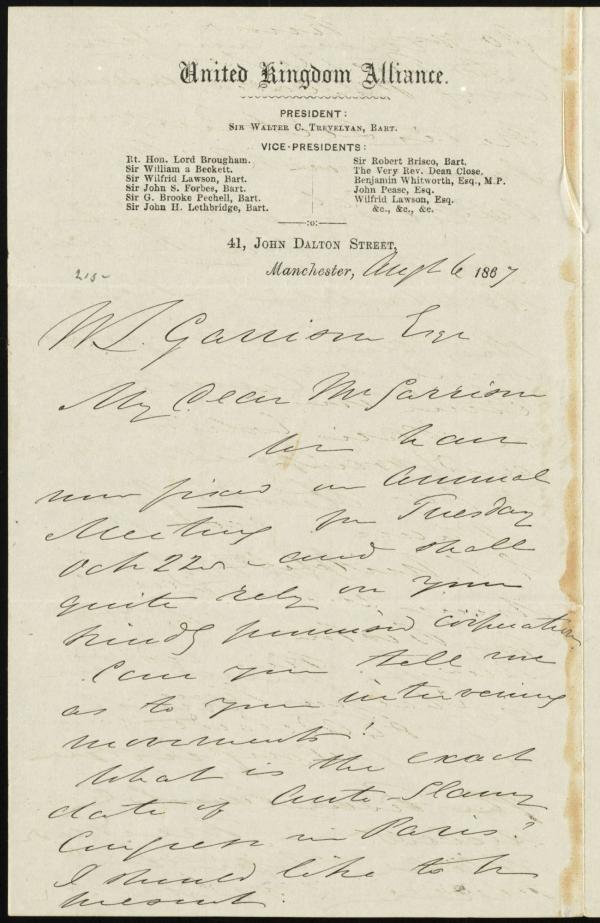 United Kingdom Alliance.
PRESIDENT:
SIR WALTER C. TREVELYAN, BART.
VICE-PRESIDENTS:
Rt. Hon. Lord Brougham.
Sir William a Beckett.
Sir Wilfrid Lawson, Bart.
Sir John S. Forbes, Bart.
Sir G. Brooke Pechell, Bart.
Sir John H. Lethbridge, Bart.
Sir Robert Brisco, Bart.
The Very Rev. Dean Close.
Benjamin Whitworth, Esq., M.P.
John Pease, Esq.
Wilfrid Lawson, Esq.
&c., &c., &c.
:o:
41, JOHN DALTON STREET,
Manchester, Augt 6 1867
W L Garrison Esqr
My Dear Mr Garrison
We have
now fixed our Annual
Meeting for Tuesday
Oct 22d - and shall
quite rely on your
kindly promised cooperation
Can you tell me
as to your intervening
movements?
What is the exact
date of Anti-Slavery
Congress in Paris?
I should like to be
present.